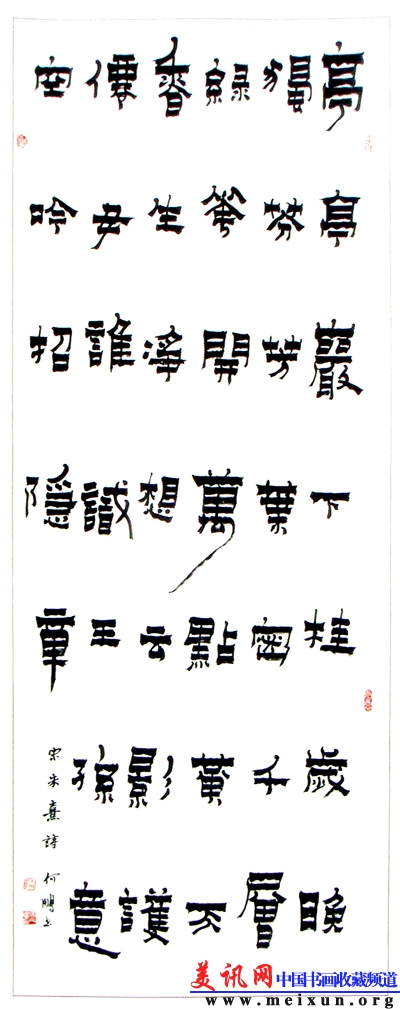 亭亭巖下桂歲晚
獨芬芳葉密千層
綠花開萬點黃天
香生淨想云影護
僊尹誰識王孫意
空吟招隱章
宋朱熹詩 何
美讯网 中国书画收藏频道
www.meixun.org